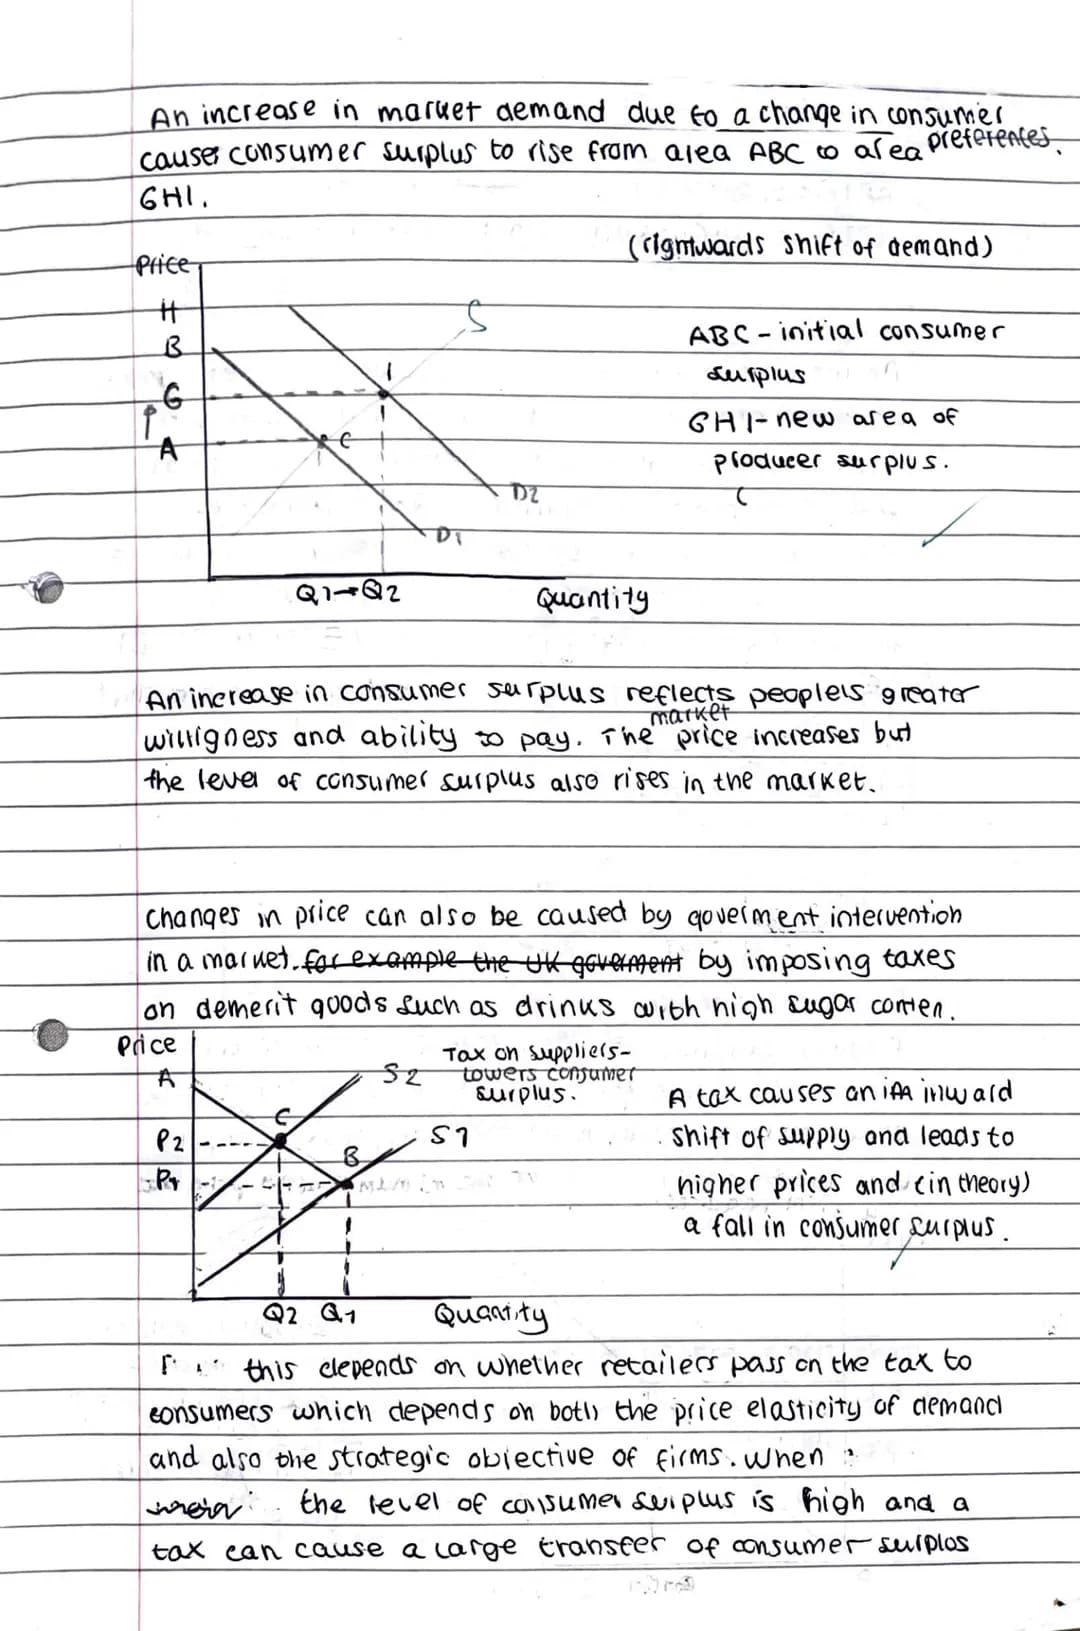 An increase in market demand due to a change in consumer
preferences.
causes consumer surplus to rise from area ABC to area
GHI.
(rightwards shift of demand)
Price
H
B
G
A
S
I
C
D2
D1
Q1→Q2
Quantity
ABC - initial consumer
surplus
GHI - new area of
producer surplus.
(
An increase in consumer surplus reflects people's greater
market
willigness and ability to pay. The price increases but
the level of consumer surplus also rises in the market.
Changes in price can also be caused by goverment intervention
in a market. for example the UK goverment by imposing taxes
on demerit goods such as drinks with high sugar conten.
Price
A
P2
P1
C
B
S2
S1
Tax on suppliers-
lowers consumer
surplus.
Q2 Q1
Quantity
A tax causes an inward
shift of supply and leads to
higher prices and (in theory)
a fall in consumer surplus.
this depends on whether retailers pass on the tax to
consumers which depends on both the price elasticity of demand
and also the strategic objective of firms. When
the level of consumer surplus is high and a
tax can cause a large transfer of consumer surplos